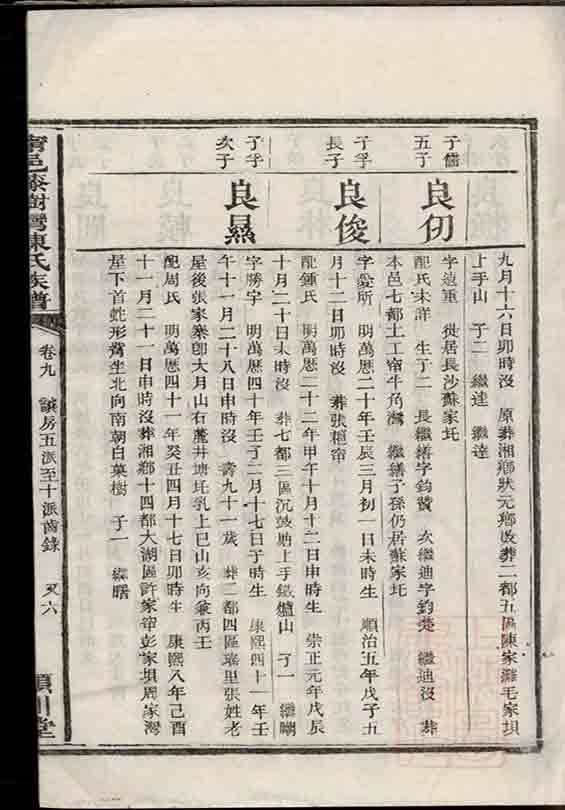 九月十六日卯時沒 原葬湘鄉狀元鄉改葬二都五區陳家灘毛家坝
上手山 子二 繼達 繼逵
子儒五子
良仞
字遠重 徙居長沙蘇家圫
配氏未詳 生子二 長繼緒字鈞贊 次繼迪字鈞 繼迪沒 葬
本邑七都土工帘牛角灣 繼緒子孫仍居蘇家圫
子孚長子
良俊
字愛所 明萬曆二十年壬辰三月初一日未時生 順治五年戊子五
月十二日卯時沒 葬張栀帘
配鍾氏 明萬曆二十二年甲午十月十二日申時生 崇正元年戊辰
十月二十日未時沒 葬七都三區沉鼓 上手鐵爐山 子一 繼
子孚次子
良㬎
字勝字 明萬曆四十年壬子二月十七日子時生 康熙四十一年壬
午十一月二十八日申時沒 壽九十一歲 葬二都四區 里張姓老
屋後張家 卽大月山右叢井塘圫乳上巳山亥向兼丙壬
配周氏 明萬曆四十一年癸丑四月十七日卯時生 康熙八年己酉
十一月二十一日申時沒葬湘鄉十四都大湖區許家帘彭家坝周家灣
屋下首蛇形 坐北向南朝白菓樹 子一 繼曙
甯邑 樹灣陳氏族譜
卷九 讓房五派至十派齒錄 又六
潁川堂